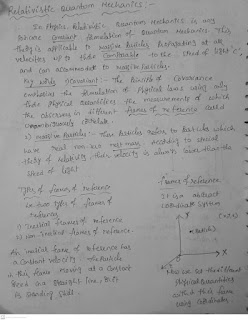 Relativistic Quantum Mechanics :-
In Physics, Relativistic Quantum Mechanics is any
Poincare Covariant formulation of Quantum Mechanics. This
theory is applicable to massive Particles Propagating at all
velocities up to those Comparable to the Speed of light "c",
and can accommodate to massless Particles.
Covariant :- The Principle of Covariance
emphasizes the formulation of Physical laws using only
those Physical quantities the measurements of which
the observers in different frames of reference could
unambiguously correlate.
massive Particles :- These Particles refers to Particles which
have real non-zero rest-mass. According to special
theory of relativity their velocity is always lower than the
Speed of light
Types of frames of reference
two types of frames of
reference
1) Inertial frames of reference
2) non-Inertial frames of reference
An inertial frame of reference has
a Constant velocity
this frame moving at a Constant
Speed in a straight line,
is standing still.
frame of reference
It is an abstract
coordinate system
Y
Particle
X
Z
How we set the different
Physical quantities
within this frame
using coordinates.